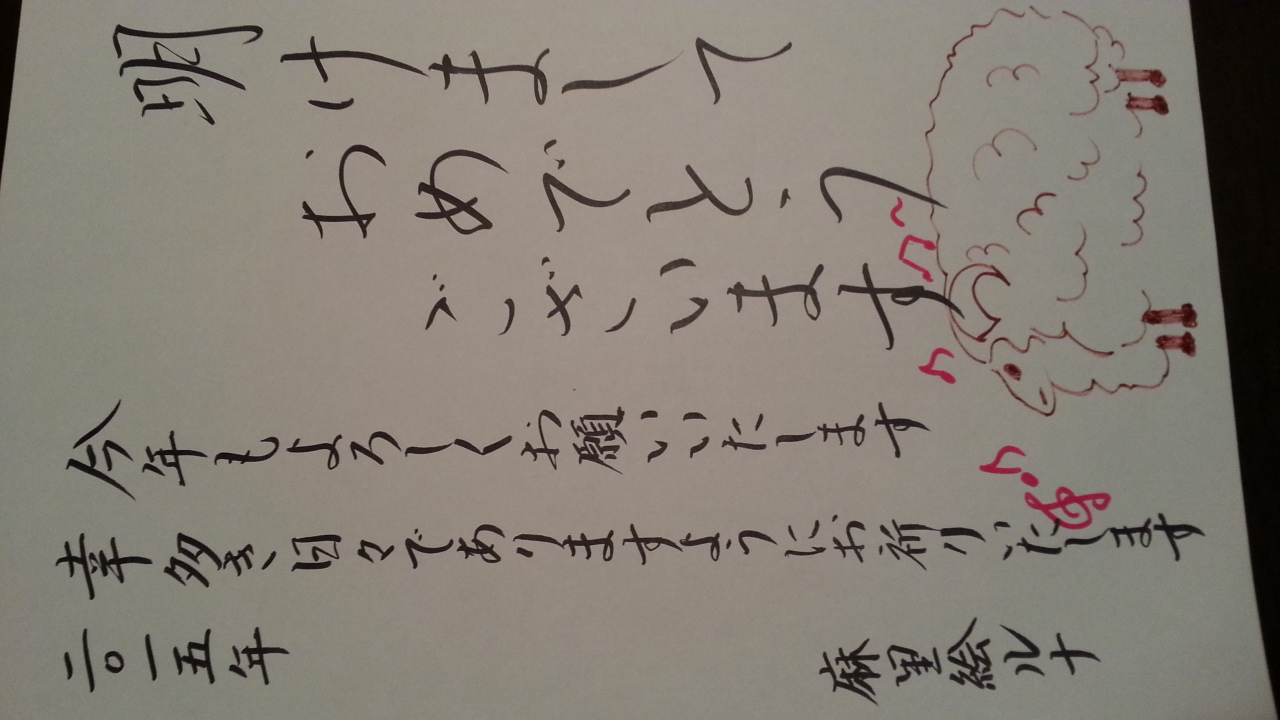 明けまして
おめでとう
ございます
今年もよろしくお願いいたします
幸多き日々でありますようにお祈りいたします
二〇一五年
麻里絵ルナ